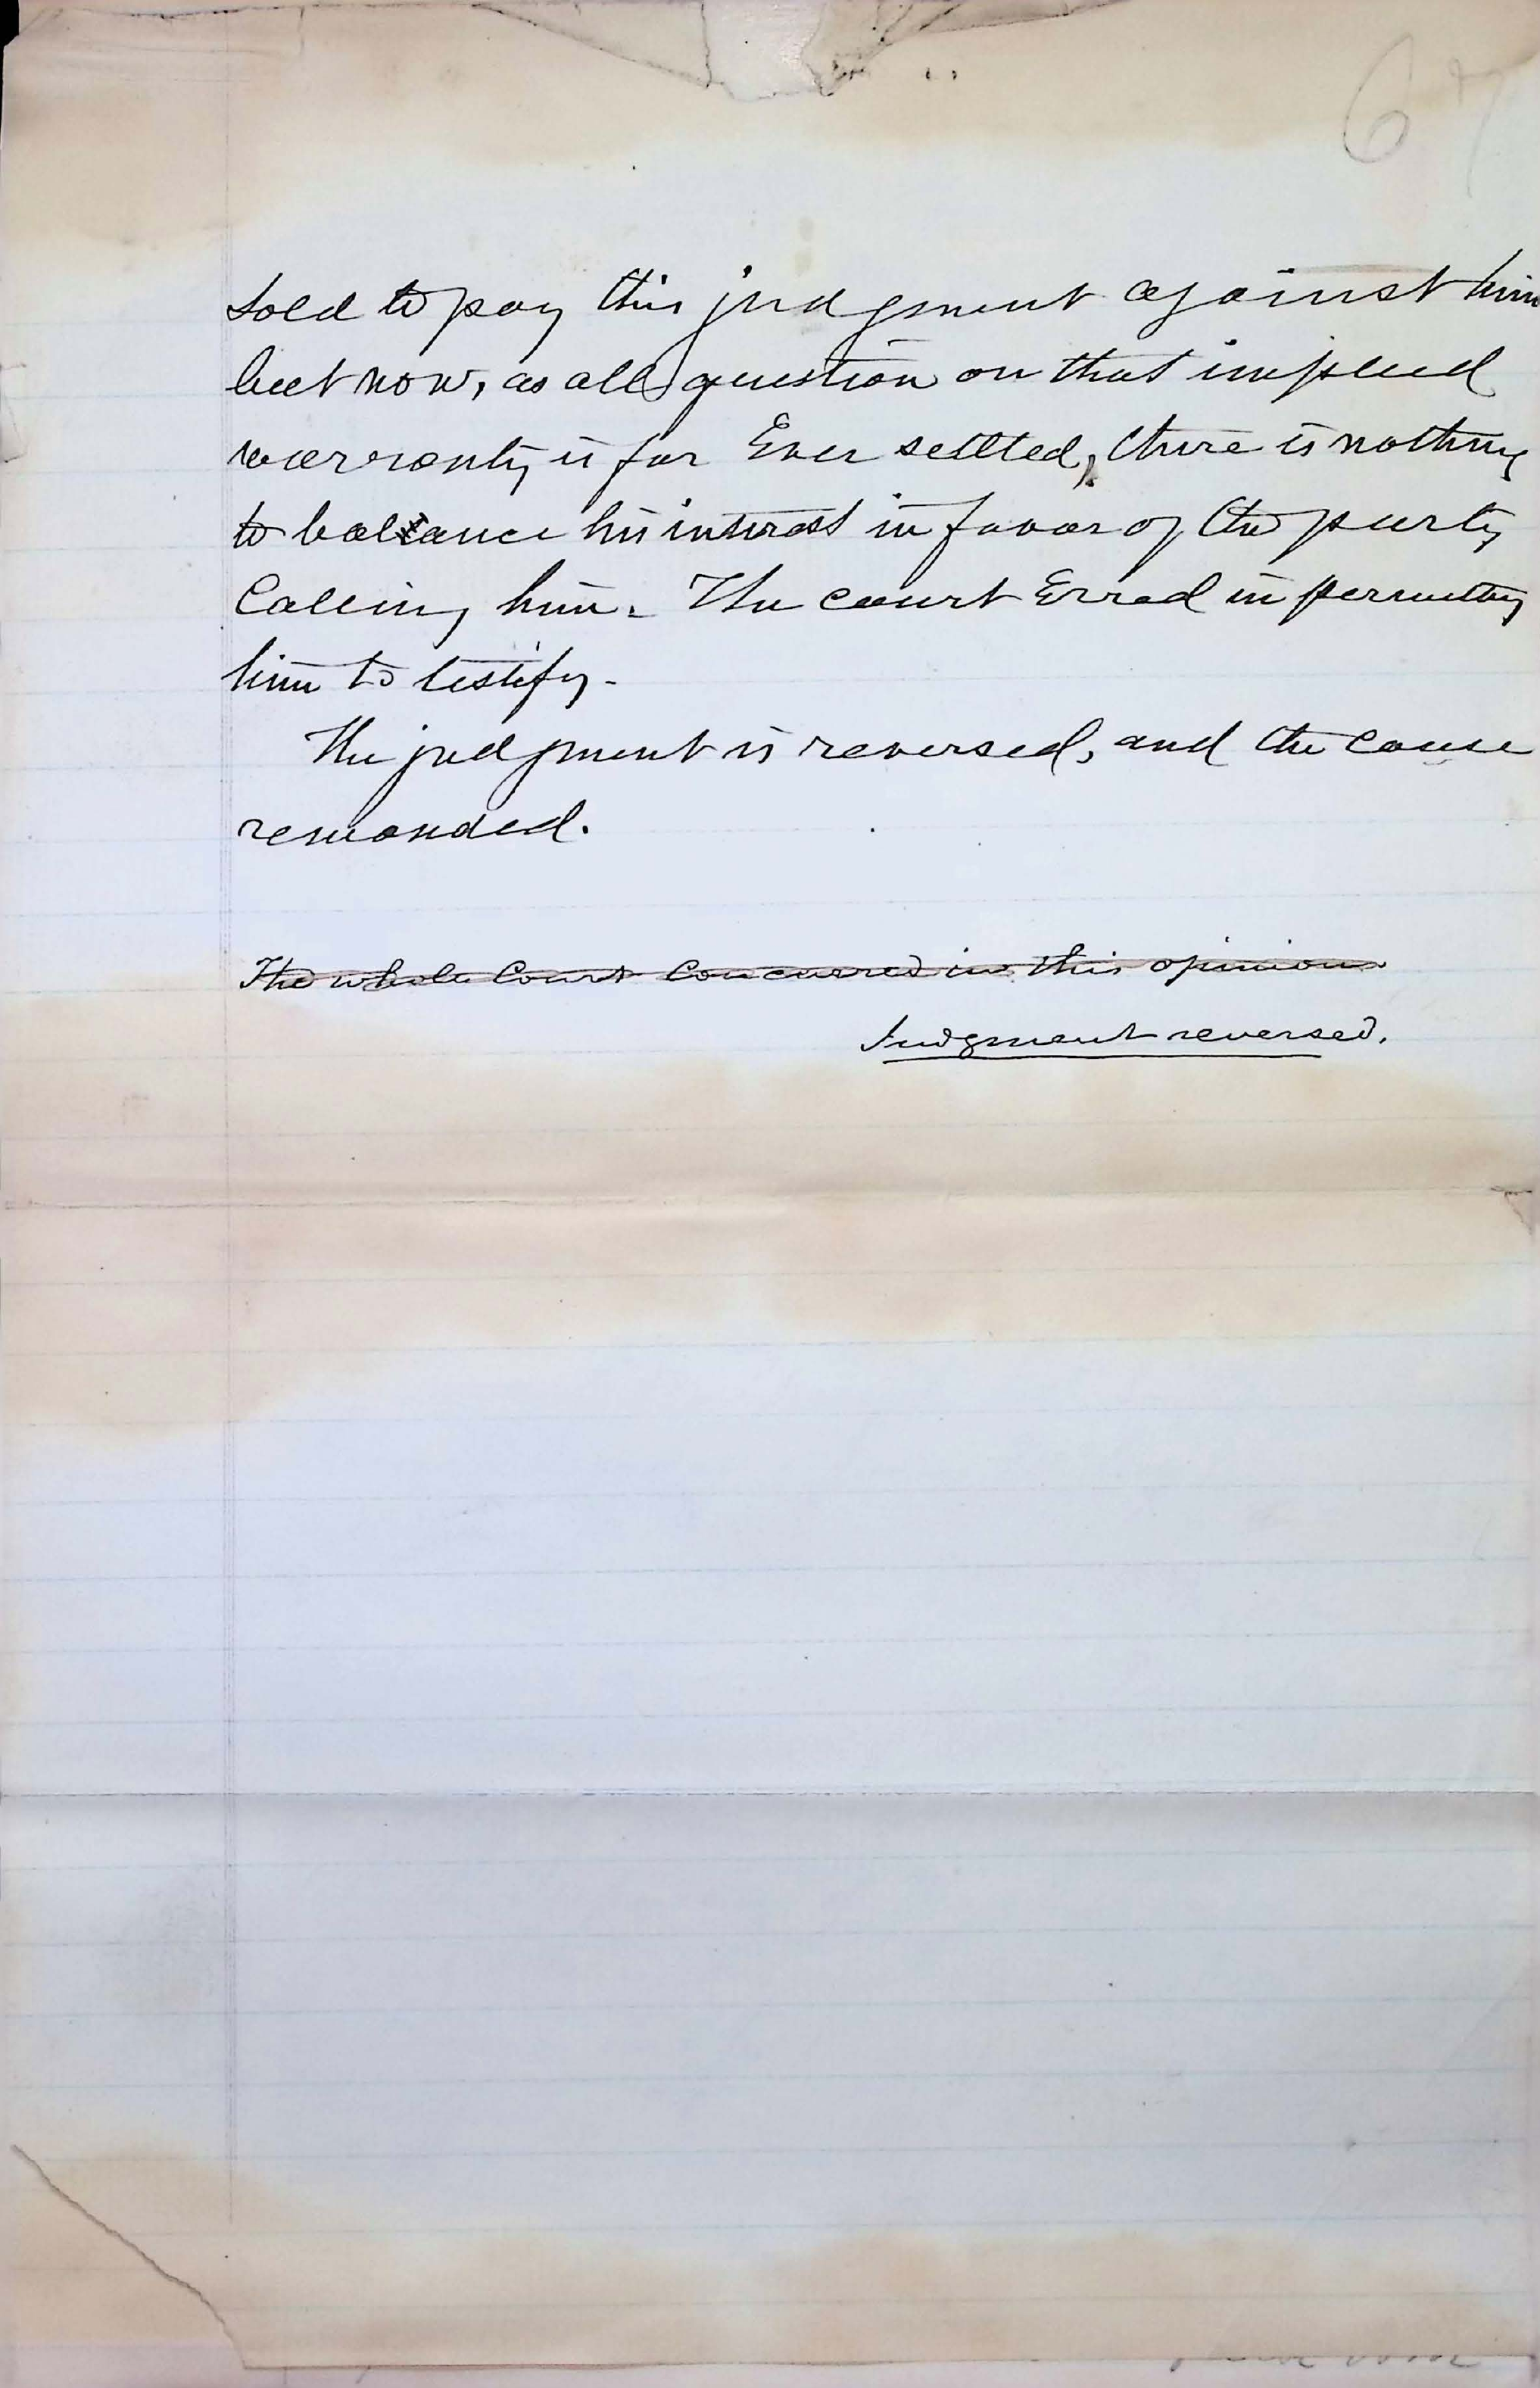 67
sold to pay this judgment against him
but now, as all question on that implied
warranty is for Ever settled, there is nothing
to balance his interest in favor of the party
Calling him. The court Erred in permitting
him to testify.
The judgment is reversed, and the cause
remanded.
The whole Court Concurred in this opinion.
Judgment reversed.